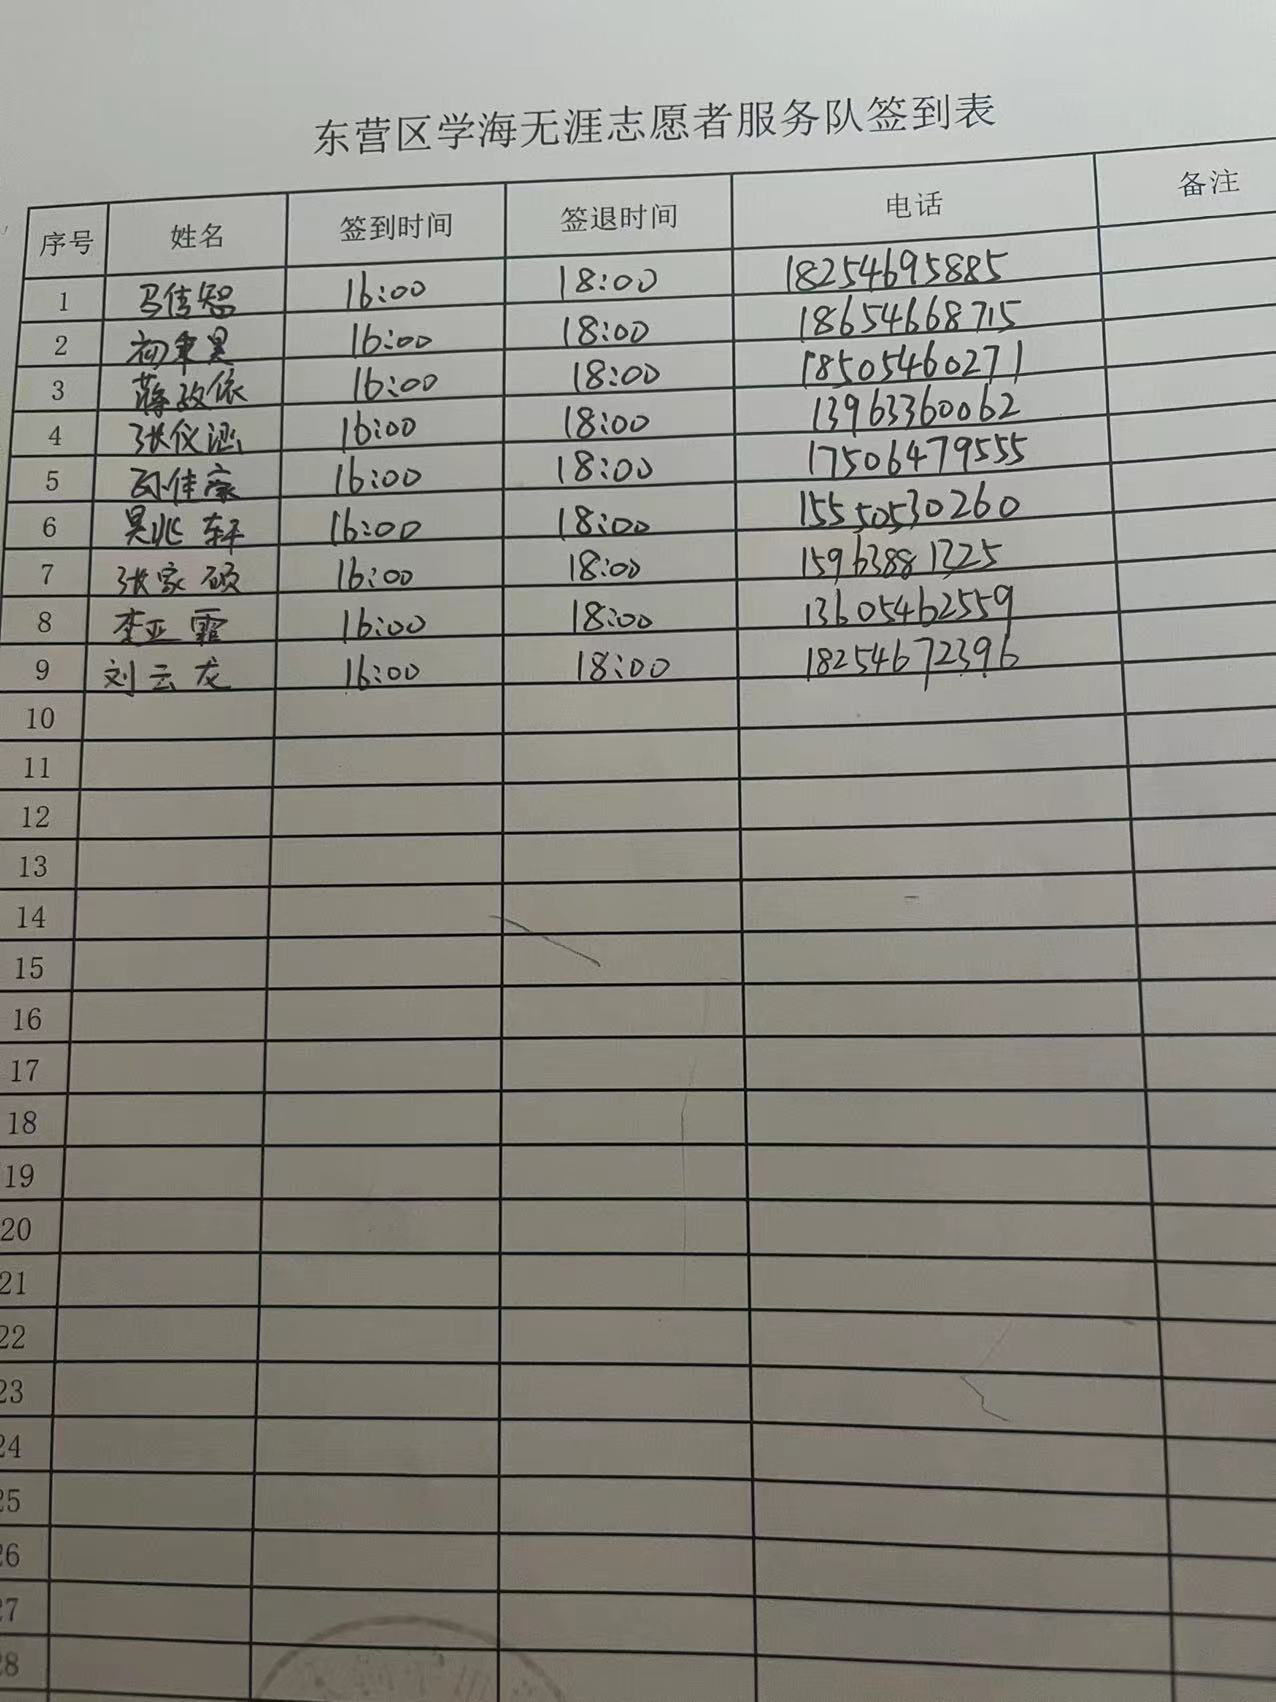 东营区学海无涯志愿者服务队签到表
序号 姓名 签到时间 签退时间 电话 备注
1 马佳智 16:00 18:00 18254695885
2 初秉昊 16:00 18:00 18654668715
3 蒋政依 16:00 18:00 18505460271
4 张仪涵 16:00 18:00 13963360062
5 孙佳豪 16:00 18:00 17506479555
6 吴兆轩 16:00 18:00 15550530260
7 张家硕 16:00 18:00 15963881225
8 李亚霏 16:00 18:00 13605462559
9 刘云龙 16:00 18:00 18254672396
10
11
12
13
14
15
16
17
18
19
20
21
22
23
24
25
26
27
28